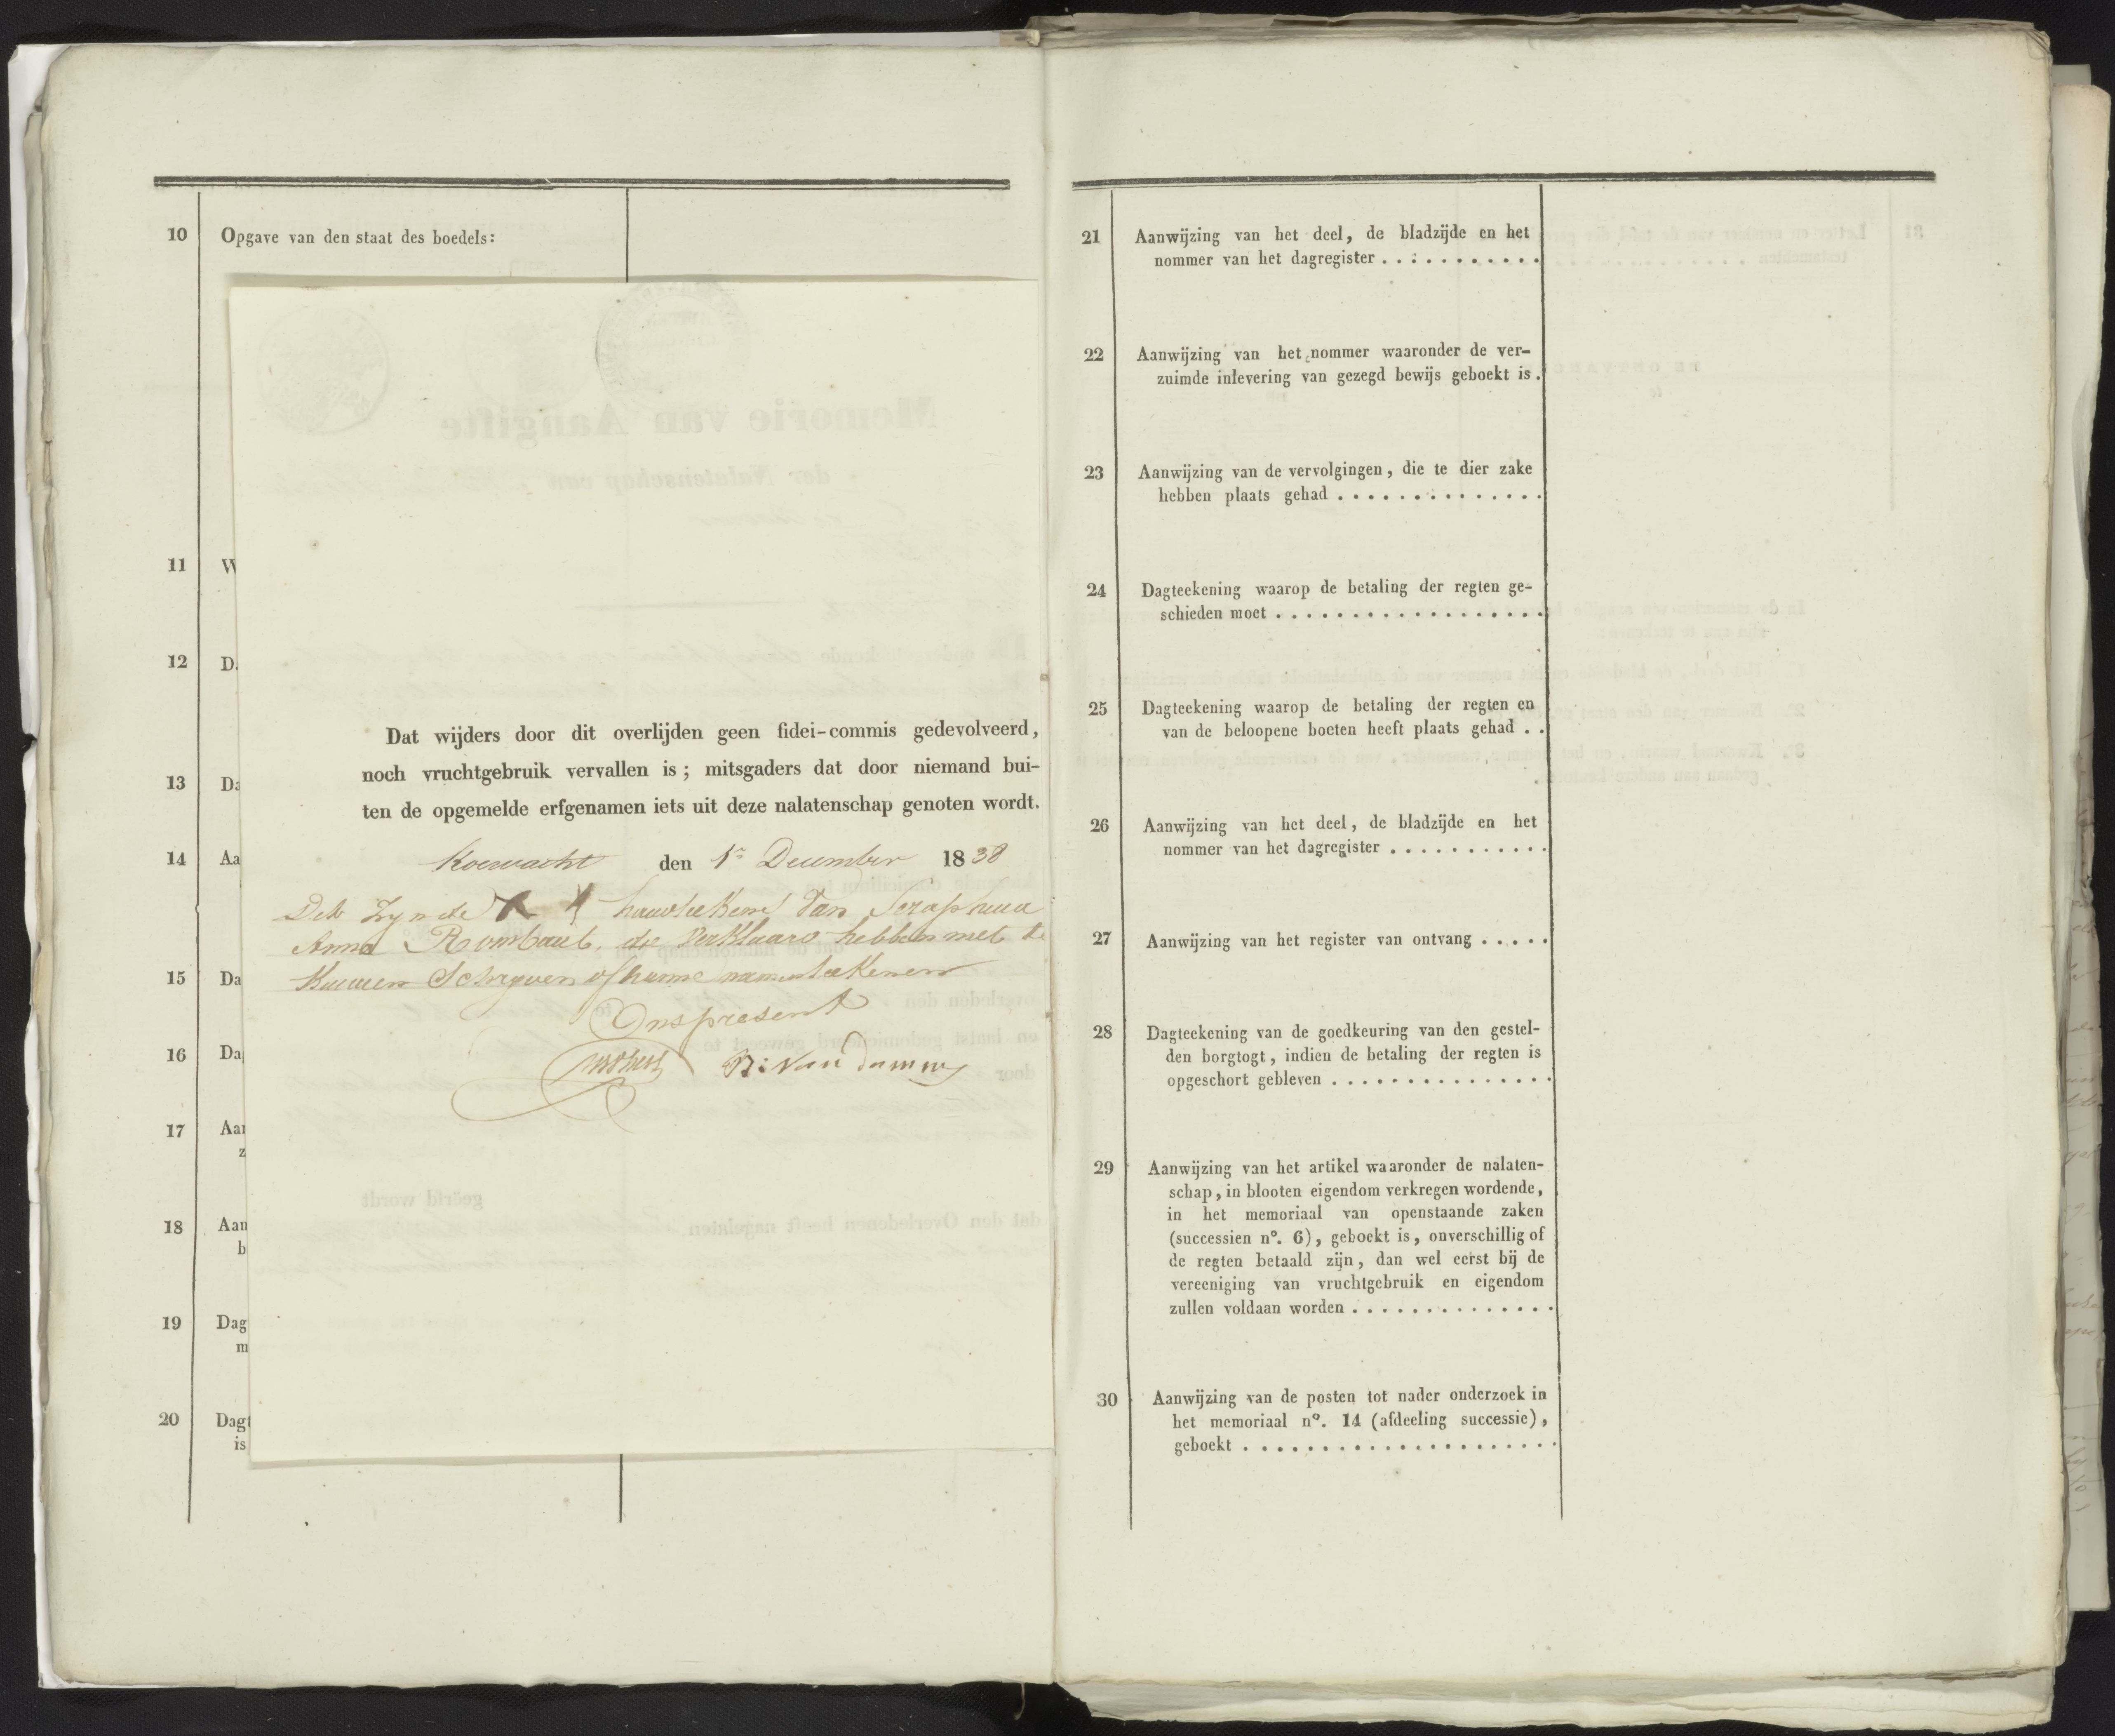 10 Opgave van den staat des boedels:
11 W
12 D.
13 Da
14 Aa
15 Da
16 Da
17 Aan
z
18 Aan
b
19 Dag
m
20 Dagt
is
Dat wijders door dit overlijden geen fidei-commis gedevolveerd,
noch vruchtgebruik vervallen is; mitsgaders dat door niemand bui-
ten de opgemelde erfgenamen iets uit deze nalatenschap genoten wordt.
Koewacht den 1e December 1838
Dit zynde X X handteken van Seraphina
Anna Rombaut, die verklaars hebben met te
Kunnen Schryven of hunne naamen tekenen
Ons present
B: Van Damme
21 Aanwijzing van het deel, de bladzijde en het
nommer van het dagregister . . . . . . . . . . .
22 Aanwijzing van het nommer waaronder de ver-
zuimde inlevering van gezegd bewijs geboekt is .
23 Aanwijzing van de vervolgingen, die te dier zake
hebben plaats gehad . . . . . . . . . . . . . .
24 Dagteekening waarop de betaling der regten ge-
schieden moet . . . . . . . . . . . . . . . . . .
25 Dagteekening waarop de betaling der regten en
van de beloopene boeten heeft plaats gehad . .
26 Aanwijzing van het deel, de bladzijde en het
nommer van het dagregister . . . . . . . . . . .
27 Aanwijzing van het register van ontvang . . . . .
28 Dagteekening van de goedkeuring van den gestel-
den borgtogt, indien de betaling der regten is
opgeschort gebleven . . . . . . . . . . . . . . .
29 Aanwijzing van het artikel waaronder de nalaten-
schap, in blooten eigendom verkregen wordende,
in het memoriaal van openstaande zaken
(successien nº. 6), geboekt is, onverschillig of
de regten betaald zijn, dan wel eerst bij de
vereeniging van vruchtgebruik en eigendom
zullen voldaan worden . . . . . . . . . . . . . .
30 Aanwijzing van de posten tot nader onderzoek in
het memoriaal nº. 14 (afdeeling successie),
geboekt . . . . . . . . . . . . . . . . . . . . .